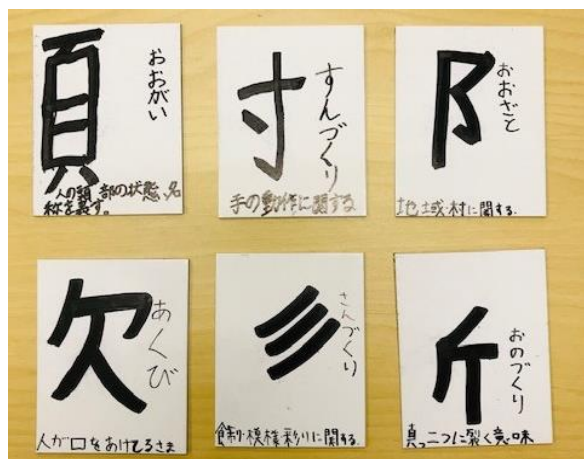 頁
おおがい
人の頭部の状態、名
称を表す。
寸
すんづくり
手の動作に関する
阝
おおざと
地域・村に関する。
欠
あくび
人が口をあけてるさま
彡
さんづくり
飾り・模様・彩りに関する
斤
おのづくり
真っ二つに裂く意味